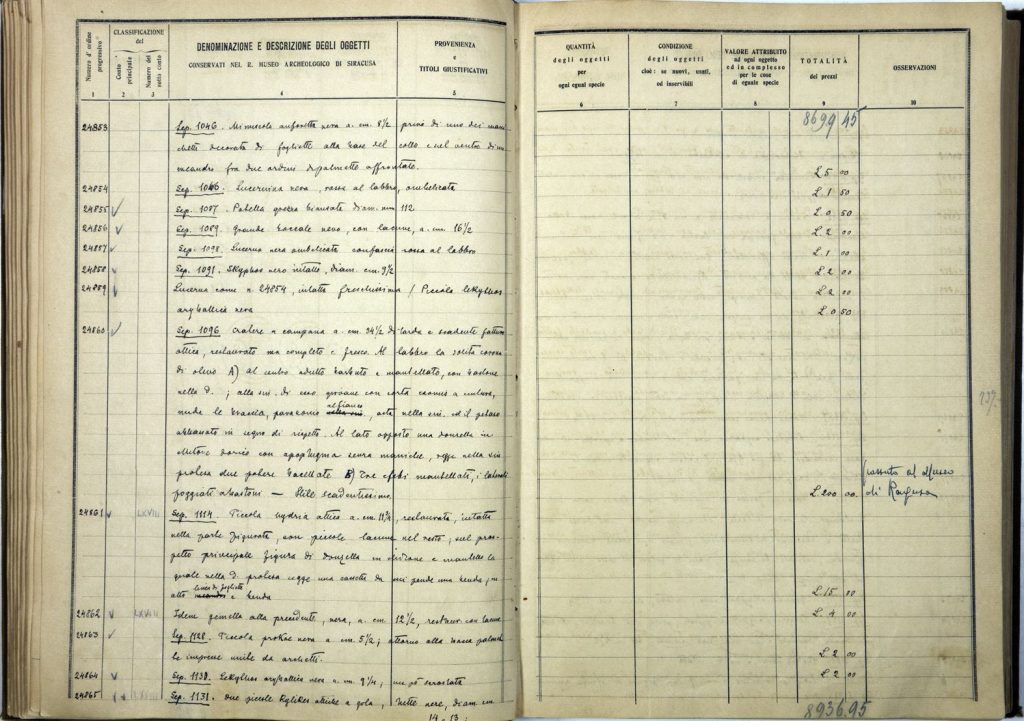 Numero d'ordine progressivo
CLASSIFICAZIONE del
Conto principale
Numero del sotto conto
DENOMINAZIONE E DESCRIZIONE DEGLI OGGETTI
CONSERVATI NEL R. MUSEO ARCHEOLOGICO DI SIRACUSA
PROVENIENZA
e
TITOLI GIUSTIFICATIVI
QUANTITÀ
degli oggetti
per
ogni egual specie
CONDIZIONE
degli oggetti
cioè: se nuovi, usati,
od inservibili
VALORE ATTRIBUITO
ad ogni oggetto
od in complesso
per le cose
di eguale specie
TOTALITÀ
dei prezzi
OSSERVAZIONI
1 2 3 4 5 6 7 8 9 10
8699 45
24853 Sep. 1046. Minuscola anforetta nera a. cm. 8 1/2 priva di uno dei mani
chetti decorata di fogliette alla base del collo e nel ventre di un
meandro fra due ordini di palmette affrontate. L. 5 00
24854 Sep. 1046. Lucernina nera, rossa al labbro, ombelicata L. 1 50
24855 Sep. 1087. Patella grezza biansata diam. mm 112 L. 0 50
24856 Sep. 1089. Grande boccale nero, con lacune, a. cm. 16 1/2 L. 2 00
24857 Sep. 1098. Lucerna nera ombelicata con fascia rossa al labbro L. 1 00
24858 Sep. 1091. Skyphos nero intatto, diam. cm. 9 1/2 L. 2 00
24859 Lucerna come n. 24854, intatta freschissima / Piccola lekythos L. 2 00
aryballica nera L. 0 50
24860 Sep. 1096 Cratere a campana a. cm. 34 1/2 di tarda e scadente fattura
attica, restaurato ma completo e fresco. Al labbro la solita corona
di olivo A) Al centro adulto barbuto e mantellato, con bastone
nella d.; alla sin. di esso giovane con corta exomis a cintura,
nude le braccia, parazonio al fianco, asta nella sin. ed il petaso
abbassato in segno di rispetto. Al lato opposto una donzella in
chitone dorico con apoptygma senza maniche, regge nella sin
protesa due patere baccellate B) Tre efebi mantellati, i laterali
poggiati a bastoni — Stile scadentissimo. L. 200 00 passato al Museo
di Ragusa
24861 LXVIII Sep. 1114. Piccola hydria attica a. cm. 11 3/4, restaurata, intatta
nella parte figurata, con piccole lacune nel resto; sul pros-
petto principale figura di donzella in chitone e mantello la
quale nella d. protesa regge una cassetta da cui pende una benda; in
alto linea di fogliette e benda L. 15 00
24862 LXVIII Idem gemella alla precedente, nera, a. cm. 12 1/2, restaur. con lacune L. 4 00
24863 Sep. 1128. Piccola prokoe nera a. cm. 5 1/2; attorno alla massa palmet
te impresse unite da archetti. L. 2 00
24864 Sep. 1130. Lekythos aryballica nera a. cm. 9 1/4; un pò scrostata L. 2 00
24865 Sep. 1131. Due piccole kylikes attiche a gola, tutte nere, diam. cm
14 - 13;
8936.95
137